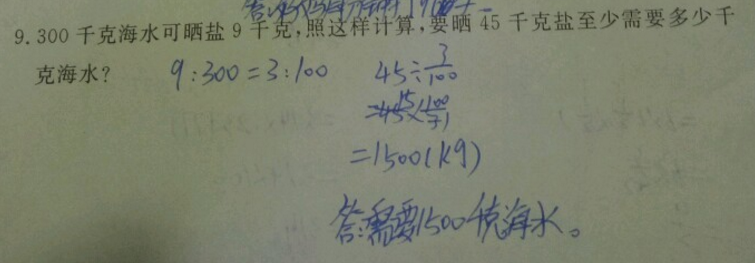 9. 300 千克海水可晒盐 9 千克,照这样计算,要晒 45 千克盐至少需要多少千
克海水?
9:300=3:100
45÷3/100
=45×100/3
=1500(kg)
答:需要1500千克海水。